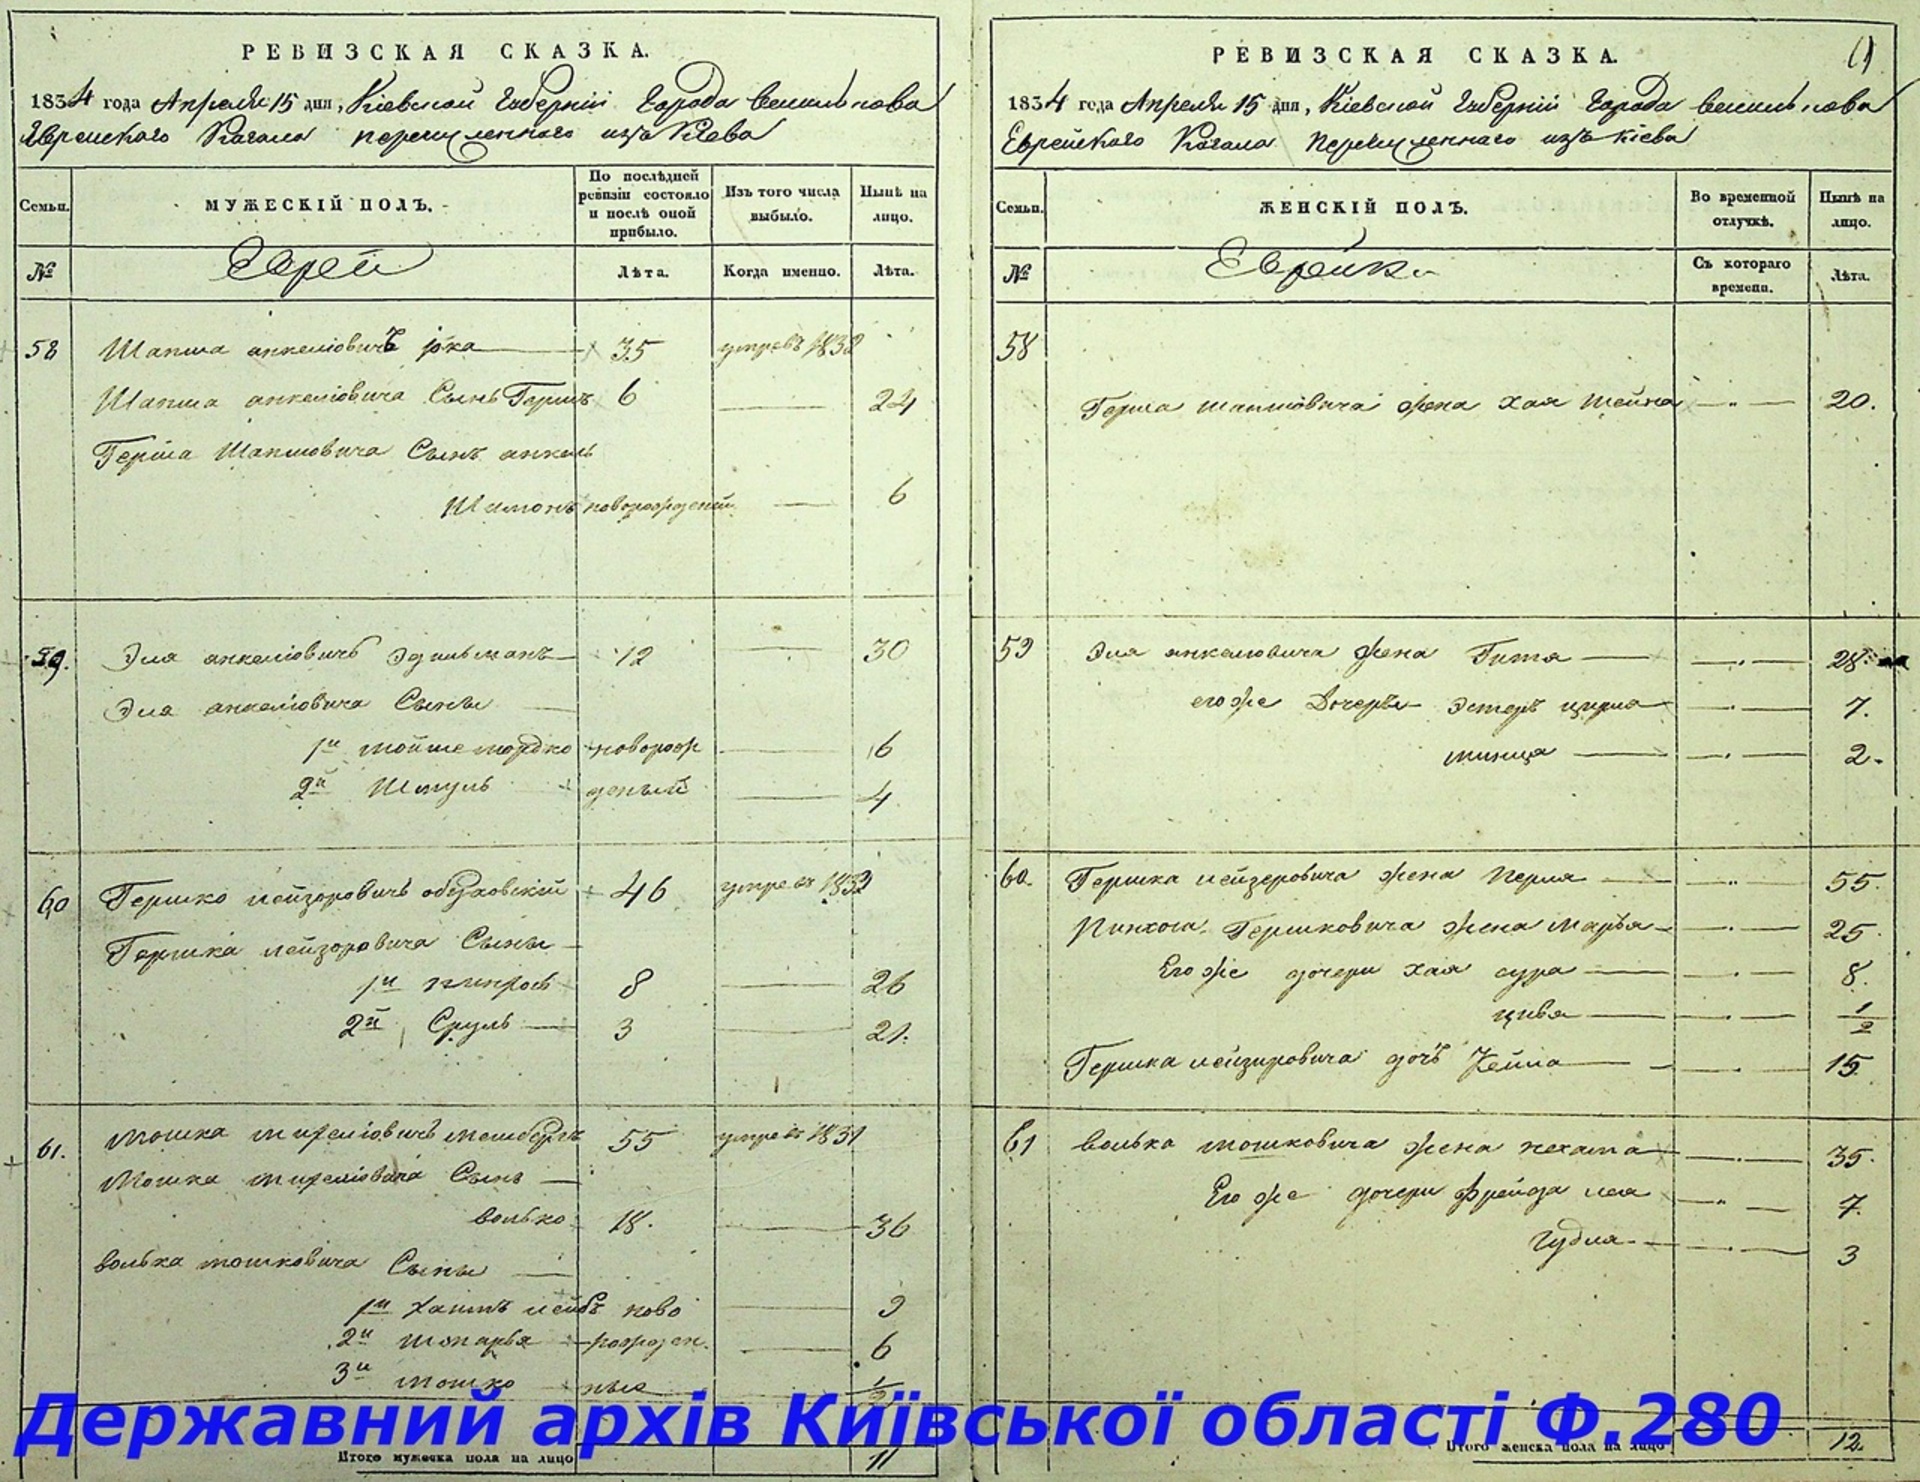 РЕВИЗСКАЯ СКАЗКА.
1834 года Апреля 15 дня, Кіевской Губерніи Города Василькова
Еврейскаго Кагала перечисленнаго изъ Кіева
Семьи.
МУЖЕСКІЙ ПОЛЪ.
По послѣдней ревизіи состояло и послѣ оной прибыло.
Изъ того числа выбыло.
Нынѣ на лицо.
№
Евреи
Лѣта.
Когда именно.
Лѣта.
58 Шапша анкеліовичъ 35 умре въ 1832
Шапша анкеліовича Сынъ Гершъ 6 — 24
Герша Шапшовича Сынъ анкель
Шимонъ новорожденый — 6
59. Эля анкеліовичъ Эдельманъ 12 — 30
Эля анкеліовича Сыны
1й мойше мордко новорож — 6
2й Шмуль деный — 4
60 Гершко лейзоровичъ обуховскій 46 умре въ 1832
Гершка лейзоровича Сыны
1й пинхось 8 — 26
2й Сруль 3 — 21.
61. Мошка 55 умре въ 1831
Мошка Сынъ
волько 18. — 36
волька мошковича Сыны
1й лейбъ ново — 9
2й рожден. — 6
3й мошко ные 1/2
Итого мужеска пола на лицо 11
РЕВИЗСКАЯ СКАЗКА.
1834 года Апреля 15 дня, Кіевской Губерніи Города Василькова
Еврейскаго Кагала перечисленнаго изъ Кіева
Семьи.
ЖЕНСКІЙ ПОЛЪ.
Во временной отлучкѣ.
Нынѣ на лицо.
№
Еврейки
Съ котораго времени.
Лѣта.
58
Герша шапшовича жена хая шейна — 20.
59 Эля анкеліовича жена Гитя — 28.
его же Дочеры эстеръ цирля — 7.
минца — 2.
60. Гершка лейзеровича жена перля — 55.
Пинхоса Гершковича жена марья — 25.
Его же дочери хая сура — 8.
цивья — 1/2
Гершка лейзировича дочь Хейша — 15
61 волька мошковича жена нехама — 35.
Его же дочери фрейда лея — 7.
гудля — 3
Итого женска пола на лицо 12.
Державний архів Київської області Ф.280